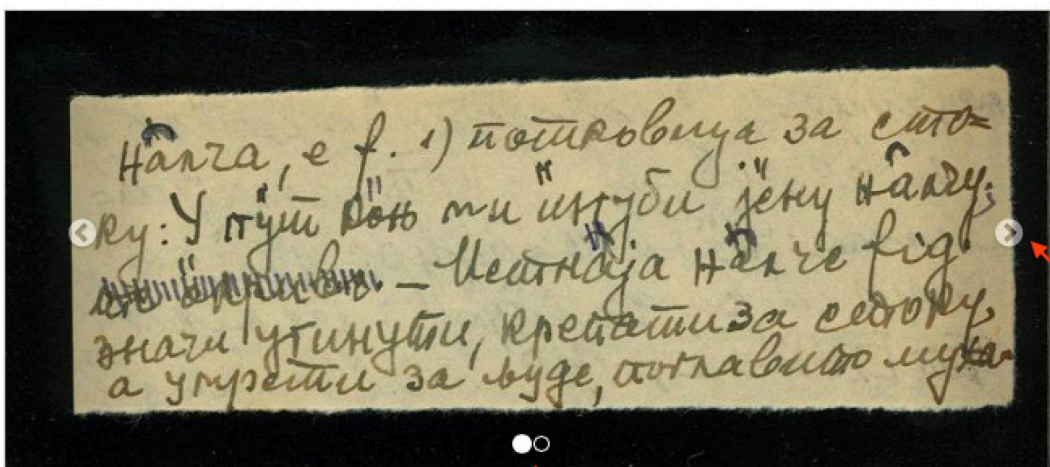 На̑лча, е f. 1) потковица за сто=
ку: У пу̏т ко̏њ ми и̏згуби је̏ну на̑лчу;
– Испнаја на̑лче fig.
значи угинути, крепати за стоку,
а умрети за људе, поглавито муха-